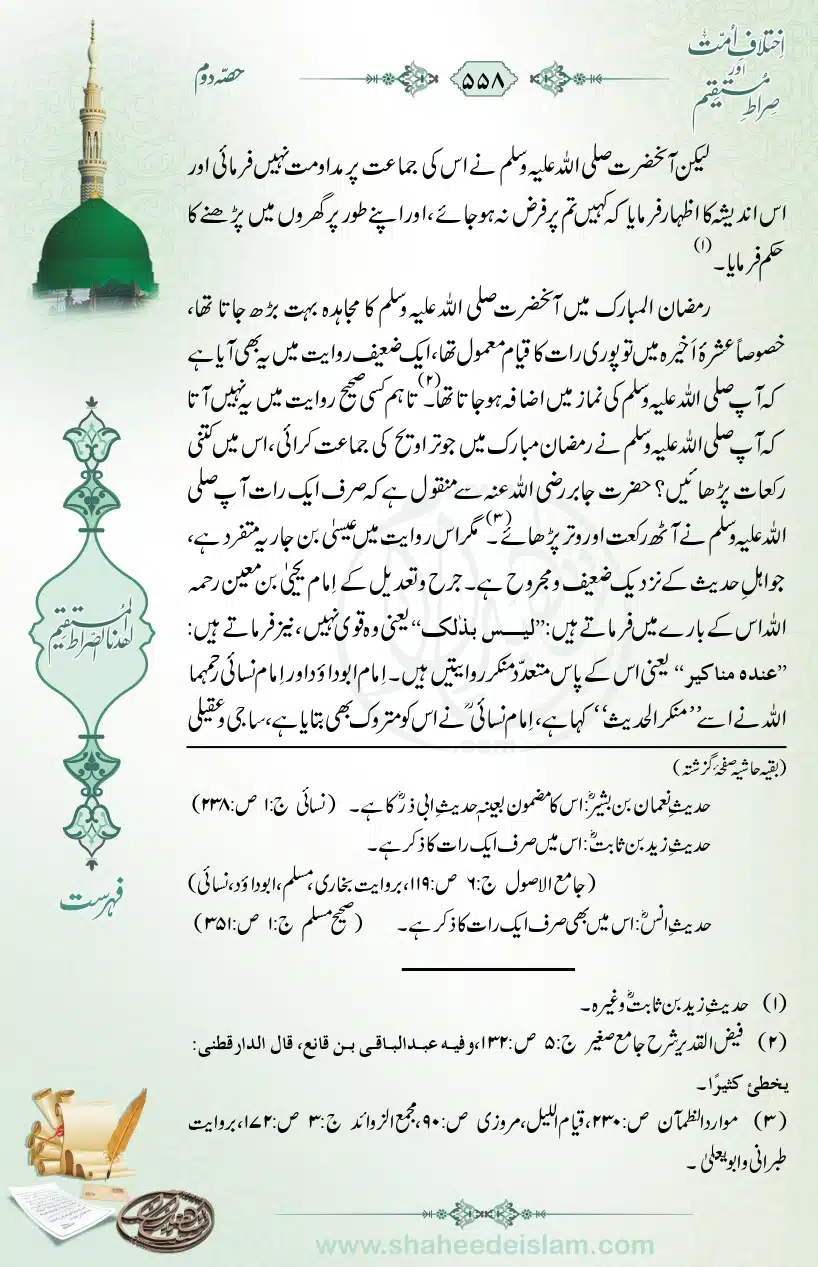 اِختلافِ اُمّت
اور
صراطِ مستقیم
۵۵۸
حصّہ دوم
لیکن آنحضرت صلی اللہ علیہ وسلم نے اس کی جماعت پر مداومت نہیں فرمائی اور
اس اندیشہ کا اظہار فرمایا کہ کہیں تم پر فرض نہ ہوجائے، اور اپنے طور پر گھروں میں پڑھنے کا
حکم فرمایا۔(۱)
رمضان المبارک میں آنحضرت صلی اللہ علیہ وسلم کا مجاہدہ بہت بڑھ جاتا تھا،
خصوصاً عشرۂ اَخیرہ میں تو پوری رات کا قیام معمول تھا، ایک ضعیف روایت میں یہ بھی آیا ہے
کہ آپ صلی اللہ علیہ وسلم کی نماز میں اضافہ ہوجاتا تھا۔(۲) تاہم کسی صحیح روایت میں یہ نہیں آتا
کہ آپ صلی اللہ علیہ وسلم نے رمضان مبارک میں جو تراویح کی جماعت کرائی، اس میں کتنی
رکعات پڑھائیں؟ حضرت جابر رضی اللہ عنہ سے منقول ہے کہ صرف ایک رات آپ صلی
اللہ علیہ وسلم نے آٹھ رکعت اور وتر پڑھائے۔(۳) مگر اس روایت میں عیسیٰ بن جاریہ متفرد ہے،
جو اہلِ حدیث کے نزدیک ضعیف و مجروح ہے۔ جرح و تعدیل کے اِمام یحییٰ بن معین رحمہ
اللہ اس کے بارے میں فرماتے ہیں: ”لیس بذلک“ یعنی وہ قوی نہیں، نیز فرماتے ہیں:
”عندہ مناکیر“ یعنی اس کے پاس متعدّد منکر روایتیں ہیں۔ اِمام ابوداوٗد اور اِمام نسائی رحمہما
اللہ نے اسے ”منکر الحدیث“ کہا ہے، اِمام نسائیؒ نے اس کو متروک بھی بتایا ہے، ساجی و عقیلی
(بقیہ حاشیہ صفحۂ گزشتہ)
حدیثِ نعمان بن بشیرؓ: اس کا مضمون بعینہٖ حدیثِ ابی ذرؓ کا ہے۔ (نسائی ج:۱ ص:۲۳۸)
حدیثِ زید بن ثابتؓ: اس میں صرف ایک رات کا ذکر ہے۔
(جامع الاصول ج:۶ ص:۱۱۹، بروایت بخاری، مسلم، ابوداوٗد، نسائی)
حدیثِ انسؓ: اس میں بھی صرف ایک رات کا ذکر ہے۔ (صحیح مسلم ج:۱ ص:۳۵۱)
(۱) حدیثِ زید بن ثابتؓ وغیرہ۔
(۲) فیض القدیر شرح جامع صغیر ج:۵ ص:۱۳۲، وفیہ عبدالباقی بن قانع، قال الدارقطنی:
یخطئ کثیرًا۔
(۳) موارد الظمآن ص:۲۳۰، قیام اللیل، مروزی ص:۹۰، مجمع الزوائد ج:۳ ص:۱۷۲، بروایت
طبرانی و ابویعلیٰ۔
اھدنا الصراط المستقیم
فہرست
www.shaheedeislam.com